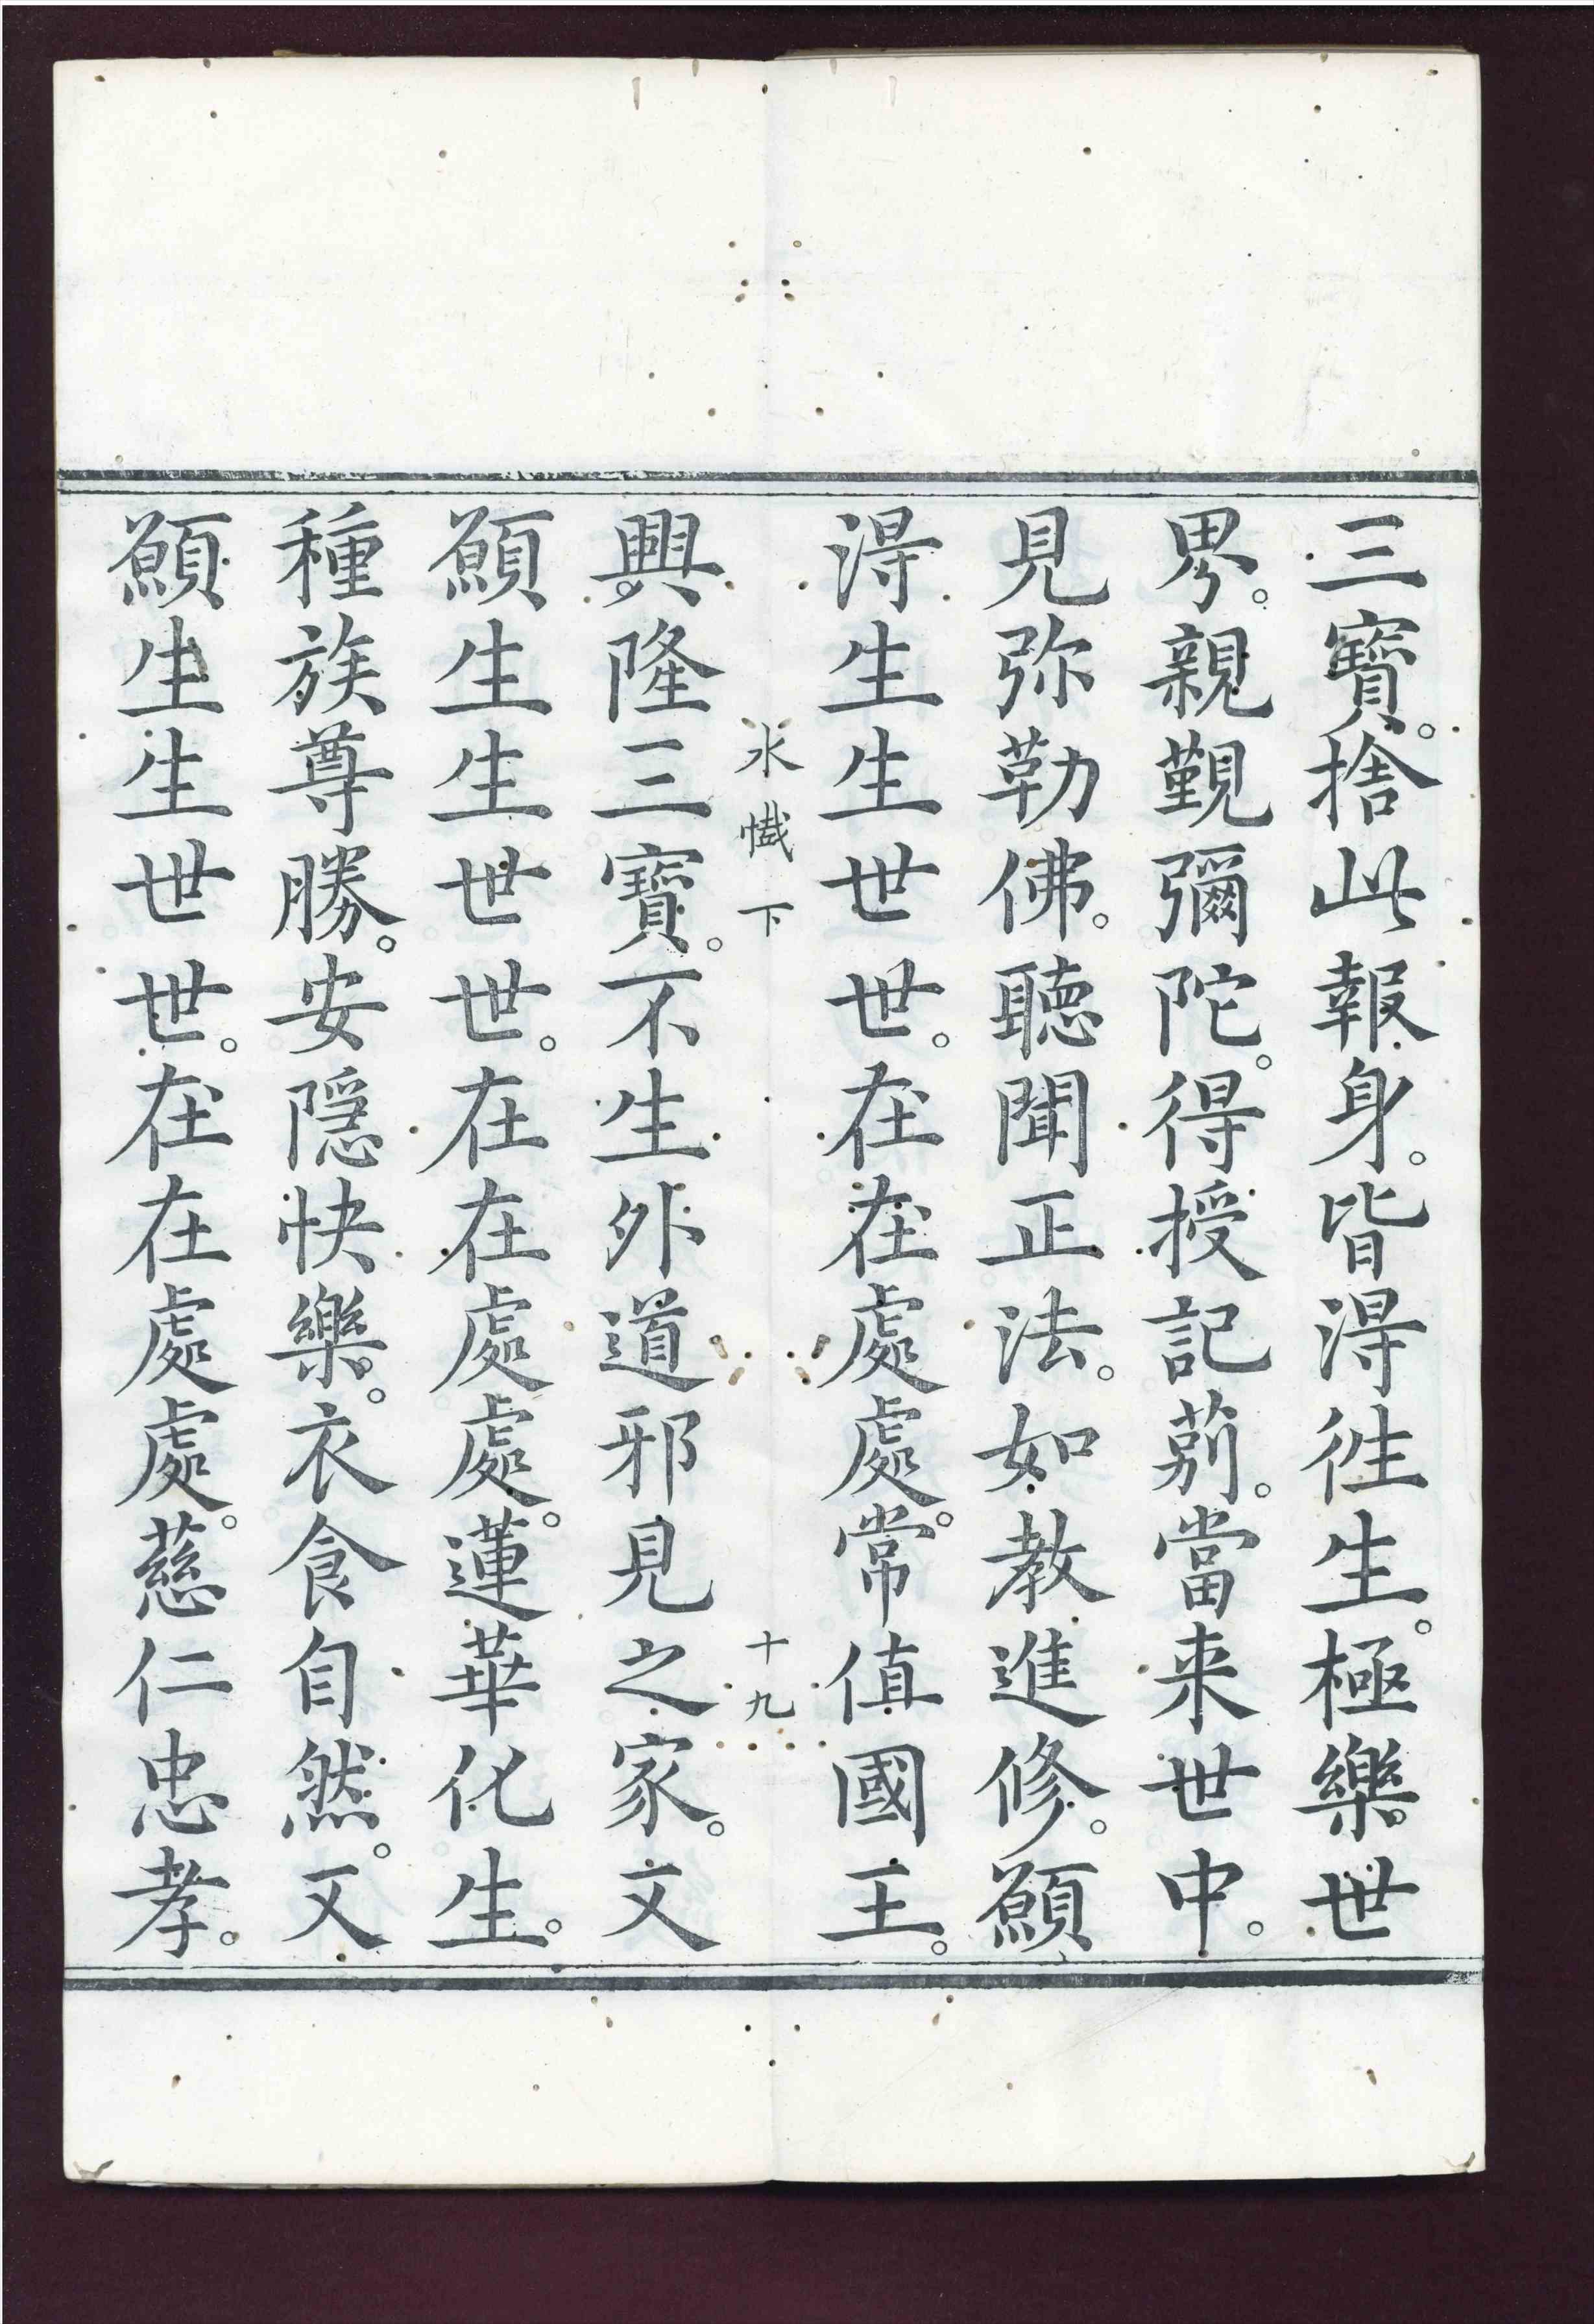 三寶。捨此報身。皆淂徃生。極樂世
界。親覲彌陀。得授記莂。當来世中。
見弥勒佛。聽聞正法。如教進修。願
淂生生世世。在在處處。常值國王。
水懴下 十九
興隆三寶。不生外道邪見之家。又
願生生世世。在在處處。蓮華化生。
種族尊勝。安隱快樂。衣食自然。又
願生生世世。在在處處。慈仁忠孝。